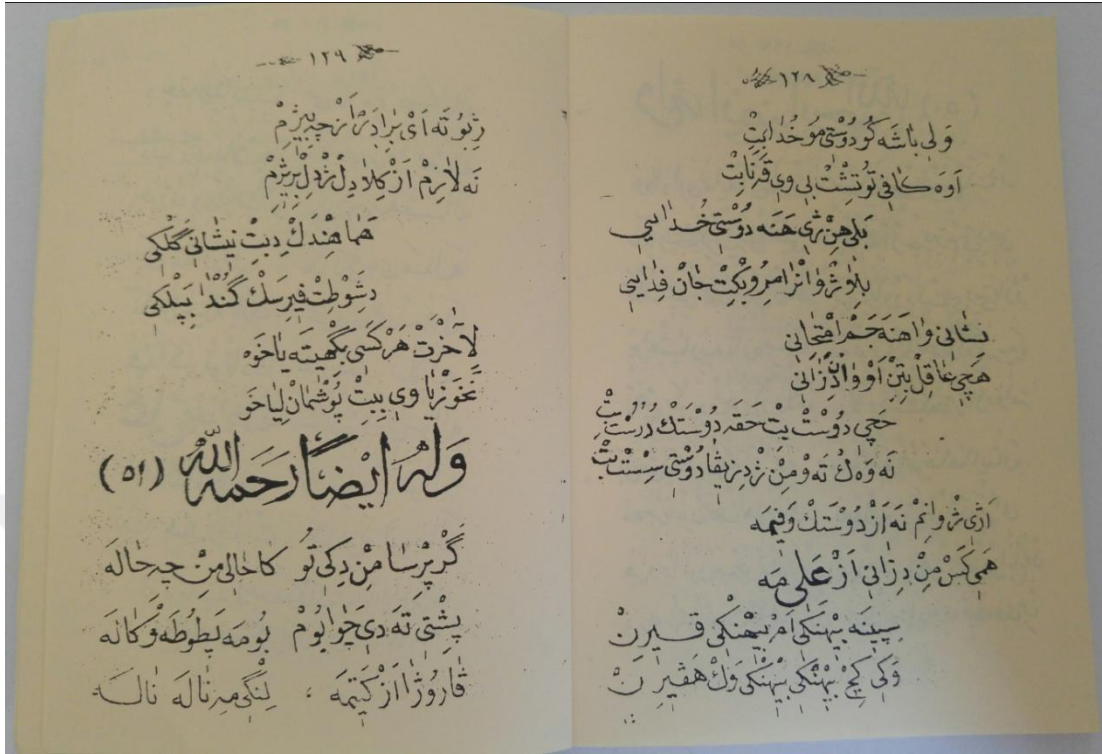 ١٢٨
وَلِي بَاشَه كُو دُوسْتِي مَوْ خُدَا بِتْ
اَوَه كَافِي تُو تِشْتْ بِي وِي قَرَنَابِتْ
بَلِي هِنْ ژِي هَنَه دُوسْتِي خُدَايِي
بَلَا وْ ژْ وَانْرَا مِرُو بِكِتْ جَانْ فِدَايِي
نِشَانِي وَا هَنَه جَمْ اِمْتِحَانِي
هَچِي عَاقِلْ بِتِنْ اَوْ وَانْ دِزَانِي
حَچِي دُوسْتْ بِتْ حَقَه دُوسْتَكْ دُرُسْتْ بِتْ
نَه وَكْ تَه وْ مِنْ ژْ دِزِيڤَا دُوسْتِي سِسْتْ بِتْ
اَزِي ژْ وَانِمْ نَه اَزْ دُوسْتَكْ وَفِيمَه
هَمِي كَسْ مِنْ دِزَانِي اَزْ عَلِي مَه
سِپِينَه بِيْهنَكِي اَمْ بِيْهنَكِي قِيرِنْ
وَكِي كِيجْ بِيْهنَكِي بِيْهنَكِي وَكْ هَڤِيرِنْ
١٢٩
ژِبُو تَه اَيْ بَرَادِرْ اَزْ چِه بِيژِمْ
نَه لَازِمْ اَزْ كِلَا دِلْ ژْ دِلْ بِرِيژِمْ
هَمَا هِنْدَكْ دِبِتْ نِيشَانِي گَلَكِي
دِشَوْطِتْ فِيرِسَكْ گُنْدَا بِپِلَكِي
لِآخْرَتْ هَرْ كَسِي بِگْهِيتَه يَا خَوَه
نَخَوْزْيَا وِي بِبِتْ پُوشْمَانْ لِيَا خَوَ
وَلَهُ اَيْضًا رَحِمَهُ اللّٰه (٥١)
گَرْ پِرْسَا مِنْ دِكِي تُو كَا حَالِي مِنْ چِه حَالَه
پِشْتِي تَه دِي چَوَا بُومْ بُومَه پَطُوطَه وْ كَالَه
ڤَا رُوژَا اَزْ كَتِيمَه ، لِنْگِي مِه نَالَه نَالَه